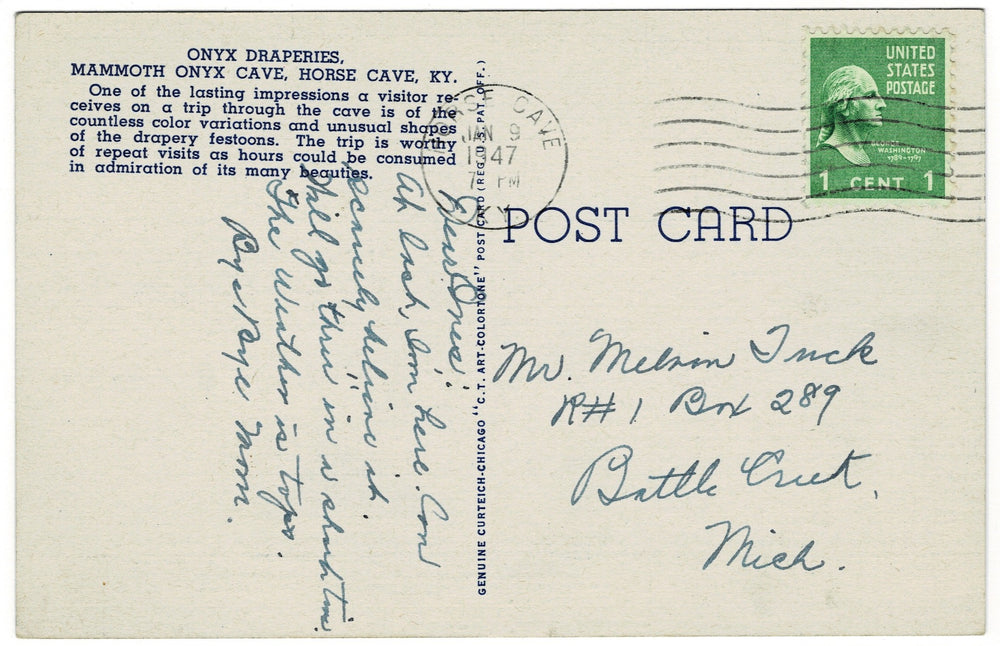 ONYX DRAPERIES,
MAMMOTH ONYX CAVE, HORSE CAVE, KY.
One of the lasting impressions a visitor re-
ceives on a trip through the cave is of the
countless color variations and unusual shapes
of the drapery festoons. The trip is worthy
of repeat visits as hours could be consumed
in admiration of its many beauties.
Dear Ones:
At last, I'm here. Can
scarcely believe it.
Will go thru in a short time.
The Weather is tops.
Bye Bye Mom.
GENUINE CURTEICH-CHICAGO "C.T. ART-COLORTONE" POST CARD (REG. U.S. PAT. OFF.)
HORSE CAVE
JAN 9
1947
7 PM
KY.
UNITED
STATES
POSTAGE
GEORGE
WASHINGTON
1789-1797
1 CENT 1
POST CARD
Mr. Melvin Tuck
R#1 Box 289
Battle Creek,
Mich.